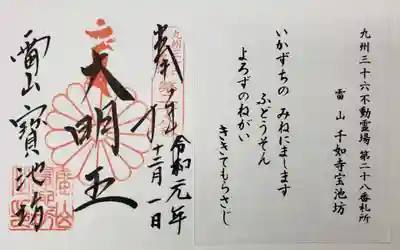 九州三十六不動霊場 第二十八番札所
雷山 千如寺宝池坊
いかずちの みねにまします
ふどうそん
よろずのねがい
ききてもらさじ
奉拝
令和元年
十二月一日
大明王
雷山 寳池坊